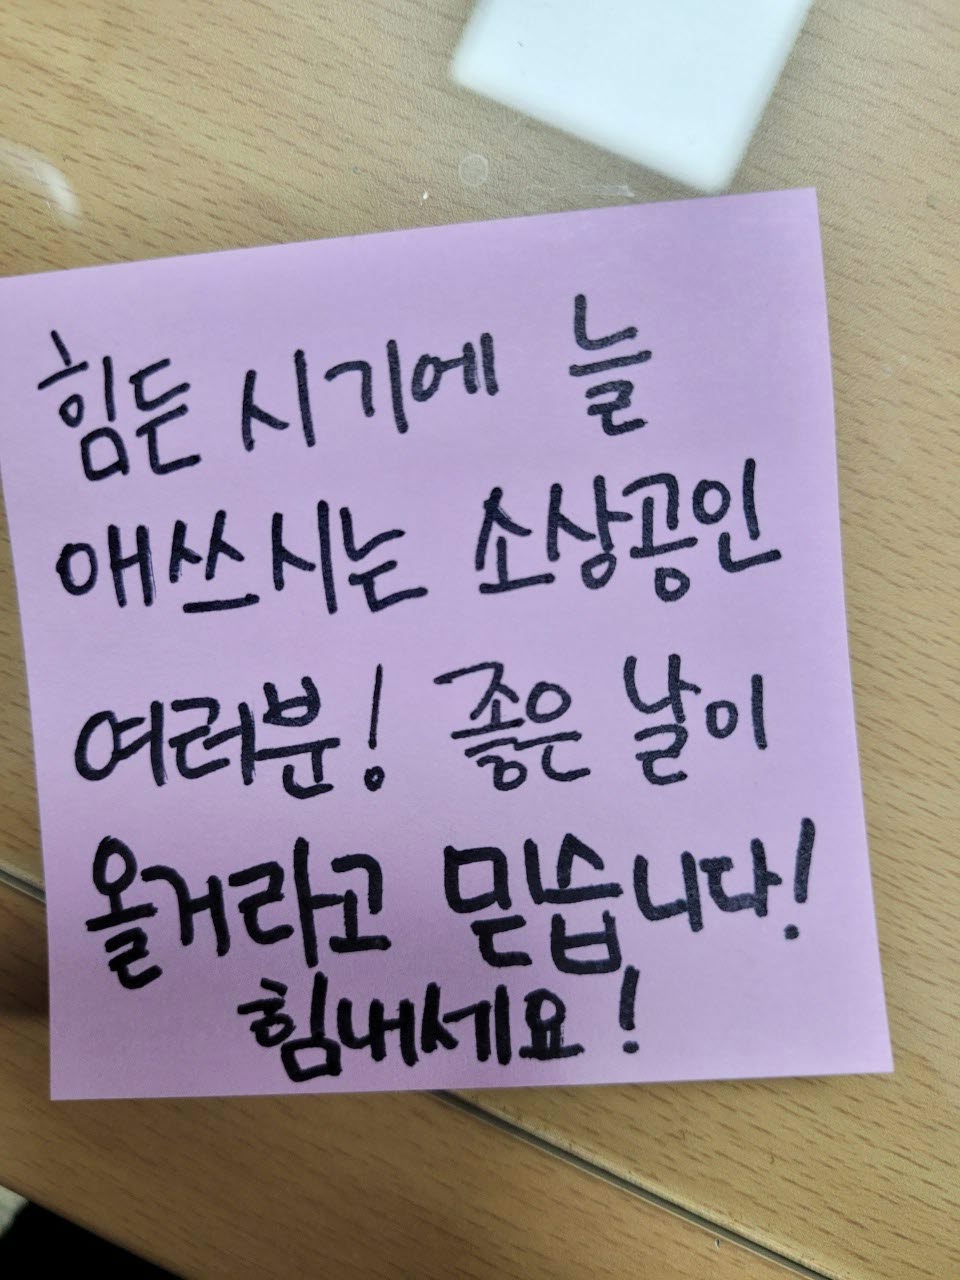 힘든 시기에 늘
애쓰시는 소상공인
여러분! 좋은 날이
올거라고 믿습니다!
힘내세요!